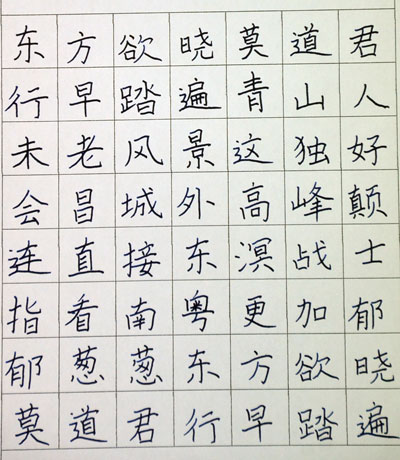 东方欲晓莫道君
行早踏遍青山人
未老风景这独好
会昌城外高峰颠
连直接东溟战士
指看南粤更加郁
郁葱葱东方欲晓
莫道君行早踏遍